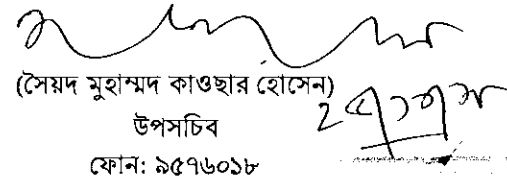 (সৈয়দ মুহাম্মদ কাওছার হোসেন)
উপসচিব
ফোন: ৯৫৭৬০১৮